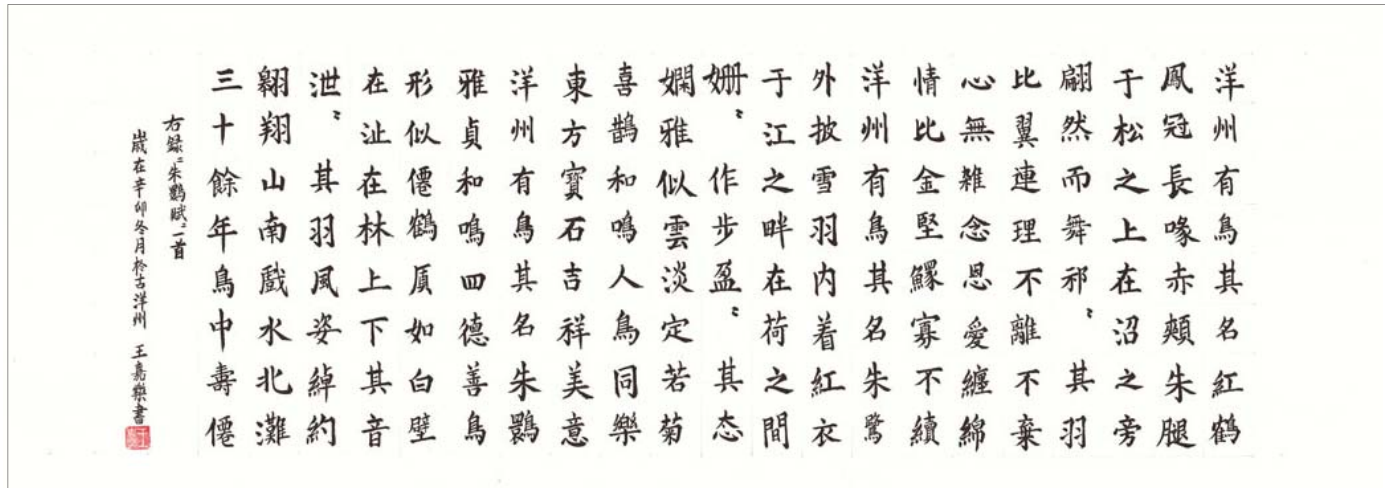 洋州有鳥其名紅鶴
鳳冠長喙赤頰朱腿
于松之上在沼之旁
翩然而舞祁〻其羽
比翼連理不離不棄
心無雑念恩愛纏綿
情比金堅鰥寡不續
洋州有鳥其名朱鷺
外披雪羽内着紅衣
于江之畔在荷之間
姍〻作步盈〻其态
嫻雅似雲淡定若菊
喜鵲和鳴人鳥同樂
東方寶石吉祥美意
洋州有鳥其名朱鹮
雅貞和鳴四德善鳥
形似僊鶴質如白璧
在沚在林上下其音
泄〻其羽風姿綽約
翱翔山南戲水北灘
三十餘年鳥中壽僊
右録"朱鹮賦"一首
歲在辛卯冬月於古洋州 王嘉樂書